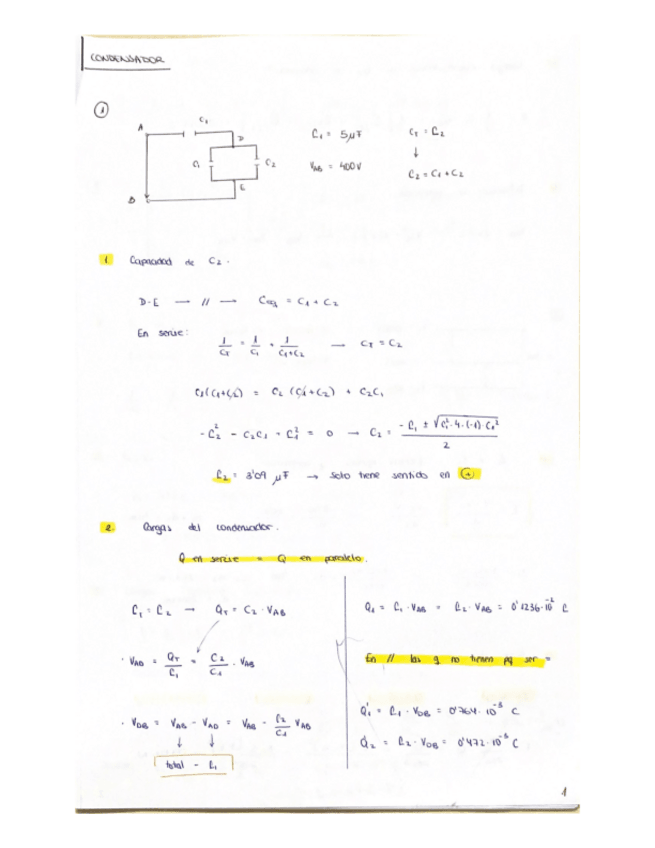 CONDENSADOR
1
C1
A D C1 = 5 μF CT = C2
C1 C2 ↓
VAB = 400 V C2 = C1 + C2
E
B
1. Capacidad de C2.
D-E → // → Ceq = C1 + C2
En serie: 1/CT = 1/C1 + 1/C1+C2 → CT = C2
C1(C1+C2) = C2 (C1+C2) + C2C1
-C2² - C2C1 + C1² = 0 → C2 = -C1 ± √C1²·4·(-1)·C1² / 2
C2 = 3'09 μF → solo tiene sentido en +
2. Cargas del condensador.
Q en serie = Q en paralelo.
C1 = C2 → QT = C2 · VAB
· VAD = QT/C1 = C2/C1 · VAB
· VDB = VAB - VAD = VAB - C2/C1 VAB
↓ ↓
total - C1
Q1 = C1 · VAB = C2 · VAB = 0'1236·10⁻² C
En // las q no tienen pq ser =
Q'1 = C1 · VDB = 0'764·10⁻³ C
Q2 = C2 · VDB = 0'472·10⁻³ C
1